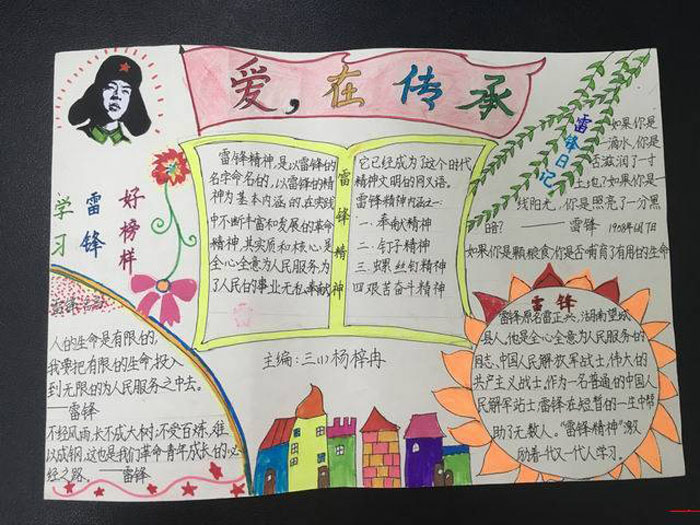 爱,在传承
学习
雷锋
好榜样
雷锋精神,是以雷锋的
名字命名的,以雷锋的精
神为基本内涵的,在实践
中不断丰富和发展的革命
精神,其实质和核心是
全心全意为人民服务,为
了人民的事业无私奉献
雷锋精神
它已经成为了这个时代
精神文明的同义语。
雷锋精神内涵之一:
一.奉献精神
二.钉子精神
三.螺丝钉精神
四艰苦奋斗精神
雷锋日记
如果你是一
滴水,你是
否滋润了一寸
土地?如果你是一
线阳光,你是照亮了一分黑
暗?——雷锋
如果你是颗粮食,你是否哺育了有用的生命
人的生命是有限的,
我要把有限的生命,投入
到无限的为人民服务之中去。
——雷锋
不经风雨,长不成大树;不受百炼,难
以成钢。这也是我们革命青年成长的必
经之路。——雷锋
主编:三(1)杨梓冉
雷锋
雷锋原名雷正兴,湖南望城
县人,他是全心全意为人民服务的
同志、中国人民解放军战士,伟大的
共产主义战士,作为一名普通的中国人
民解军站士雷锋在短暂的一生中帮
助了无数人。“雷锋精神”激
励着一代又一代人学习。